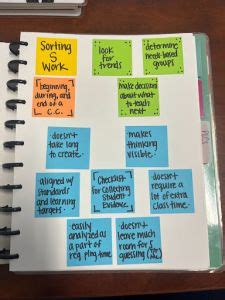 Sorting
S
Work
look
for
trends
determine
needs-based
groups
beginning,
during, and
end of a
C.C.
make decisions
about what
to teach
next
doesn't
take long
to create.
makes
thinking
visible.
aligned w/
standards
and learning
targets.
Checklist
for collecting
Student
Evidence
doesn't
require a
lot of extra
class time.
easily
analyzed as
a part of
reg. plng time
doesn't
leave much
room for S
guessing